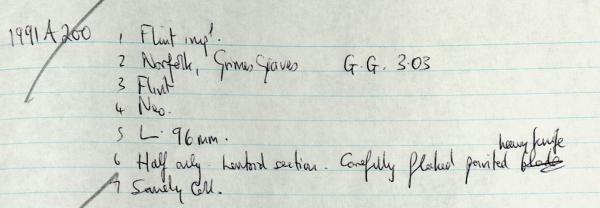 1991 A 200 1 Flint impl.
2 Norfolk, Grimes Graves G.G. 3.03
3 Flint
4 Neo.
5 L. 96 mm.
heavy knife
6 Half only. Lentoid section. Carefully flaked pointed blade
7 Coll.